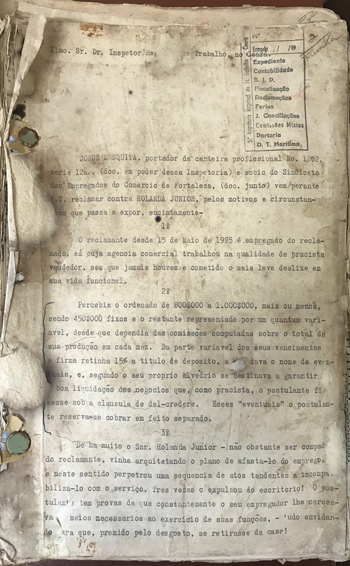 Ilmo. Sr. Dr. Inspetor Re do Trabalho, no Ceará
Nº
Emtodo / /19
Expediente
Contabilidade
S. I. P.
Fiscalização
Reclamações
Ferias
J. Conciliações
Comissões Mixtas
Portaria
D. T. Maritimo
JORGE MESQUITA, portador da carteira profissional No. 1202,
serie 12a., (doc. em poder dessa Inspetoria) e socio do Sindicato
dos Empregados do Comercio de Fortaleza, (doc. junto) vem perante
V.S. reclamar contra HOLANDA JUNIOR, pelos motivos e circunstan-
cias que passa a expor, sucintamente-
1º
O reclamante desde 15 de Maio de 1935 é empregado do recla-
mado, cá cuja agencia comercial trabalhou na qualidade de pracista
vendedor, sem que jamais houvesse cometido o mais leve deslize em
sua vida funcional.
2º
Percebia o ordenado de 800$000 a 1.000$000, mais ou menos,
sendo 450$000 fixos e o restante representado por um quantum vari-
avel, desde que dependia das comissões computadas sobre o total de
sua produção em cada mez. Da parte variavel dos seus vencimentos
a firma retinha 15% a titulo de deposito, a dava o nome de even-
tuais, e, segundo o seu proprio alvedrio se destinava a garantir
a boa liquidação dos negocios que, como pracista, o postulante fi
zesse sob a clausula de del-credere. Esses "eventuais" o postulan-
te reserva-se cobrar em feito separado.
3º
De ha muito o Snr. Holanda Junior - não obstante ser compad
do reclamante, vinha arquitetando o plano de afasta-lo do emprego,
e neste sentido perpetrou uma sequencia de atos tendentes a incompa
biliza-lo com o serviço. Tres vezes o expulsou do escritorio! O pos-
tulante tem provas de que constantemente o seu empregador lhe cercea-
va meios necessarios ao exercicio de suas funções, - tudo envidan-
do para que, premido pelo desgosto, se retirasse da casa!